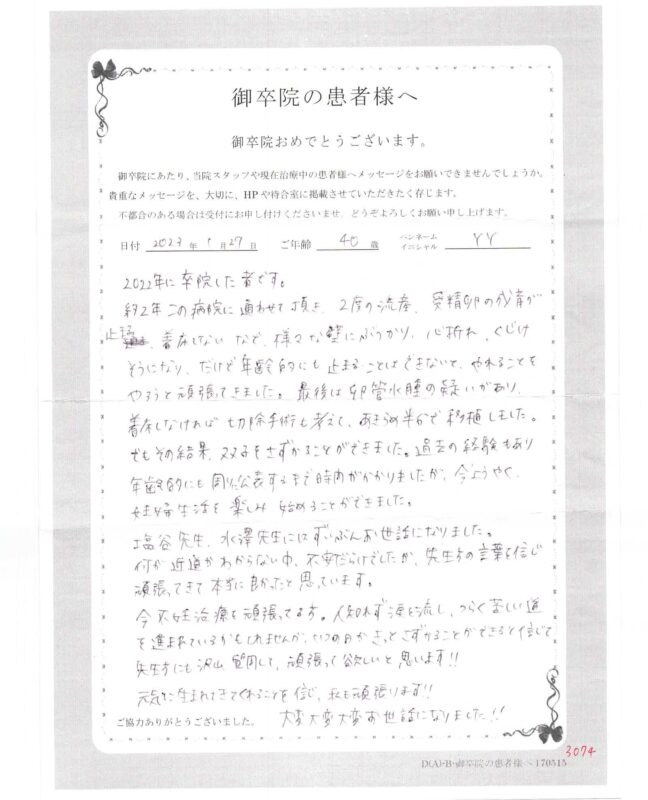 御卒院の患者様へ
御卒院おめでとうございます。
御卒院にあたり、当院スタッフや現在治療中の患者様へメッセージをお願いできませんでしょうか。
貴重なメッセージを、大切に、HPや待合室に掲載させていただきたく存じます。
不都合のある場合は受付にお申し付けくださいませ どうぞよろしくお願い申し上げます。
日付 2023年1月27日 ご年齢 40歳 ペンネーム イニシャル YY
2022年に卒院した者です。
約2年この病院に通わせて頂き、2度の流産、受精卵の成育が
止まる、着床しないなど、様々な壁にぶつかり、心折れ、くじけ
そうになり、だけど年齢的にも止まることはできないと、やれることを
やろうと頑張ってきました。最後は卵管水腫の疑いがあり、
着床しなければ切除手術も考えて、あきらめ半分で移植しました。
でもその結果、双子をさずかることができました。過去の経験もあり
年齢的にも周りに公表するまで時間がかかりましたが、今ようやく、
妊婦生活を楽しみ始めることができました。
塩谷先生、水澤先生にはずいぶんお世話になりました。
何が近道かわからない中、不安だらけでしたが、先生方の言葉を信じ
頑張ってきて本当に良かったと思っています。
今不妊治療を頑張ってる方。人知れず涙を流し、つらく苦しい道
を進まれているかもしれませんが、いつの日かきっとさずかることができると信じて
先生方にも沢山質問して、頑張って欲しいと思います!!
元気に生まれてきてくれることを信じ、私も頑張ります!!
大変大変大変お世話になりました!!
ご協力ありがとうございました。
3074
D(A)-B-御卒院の患者様へ170515